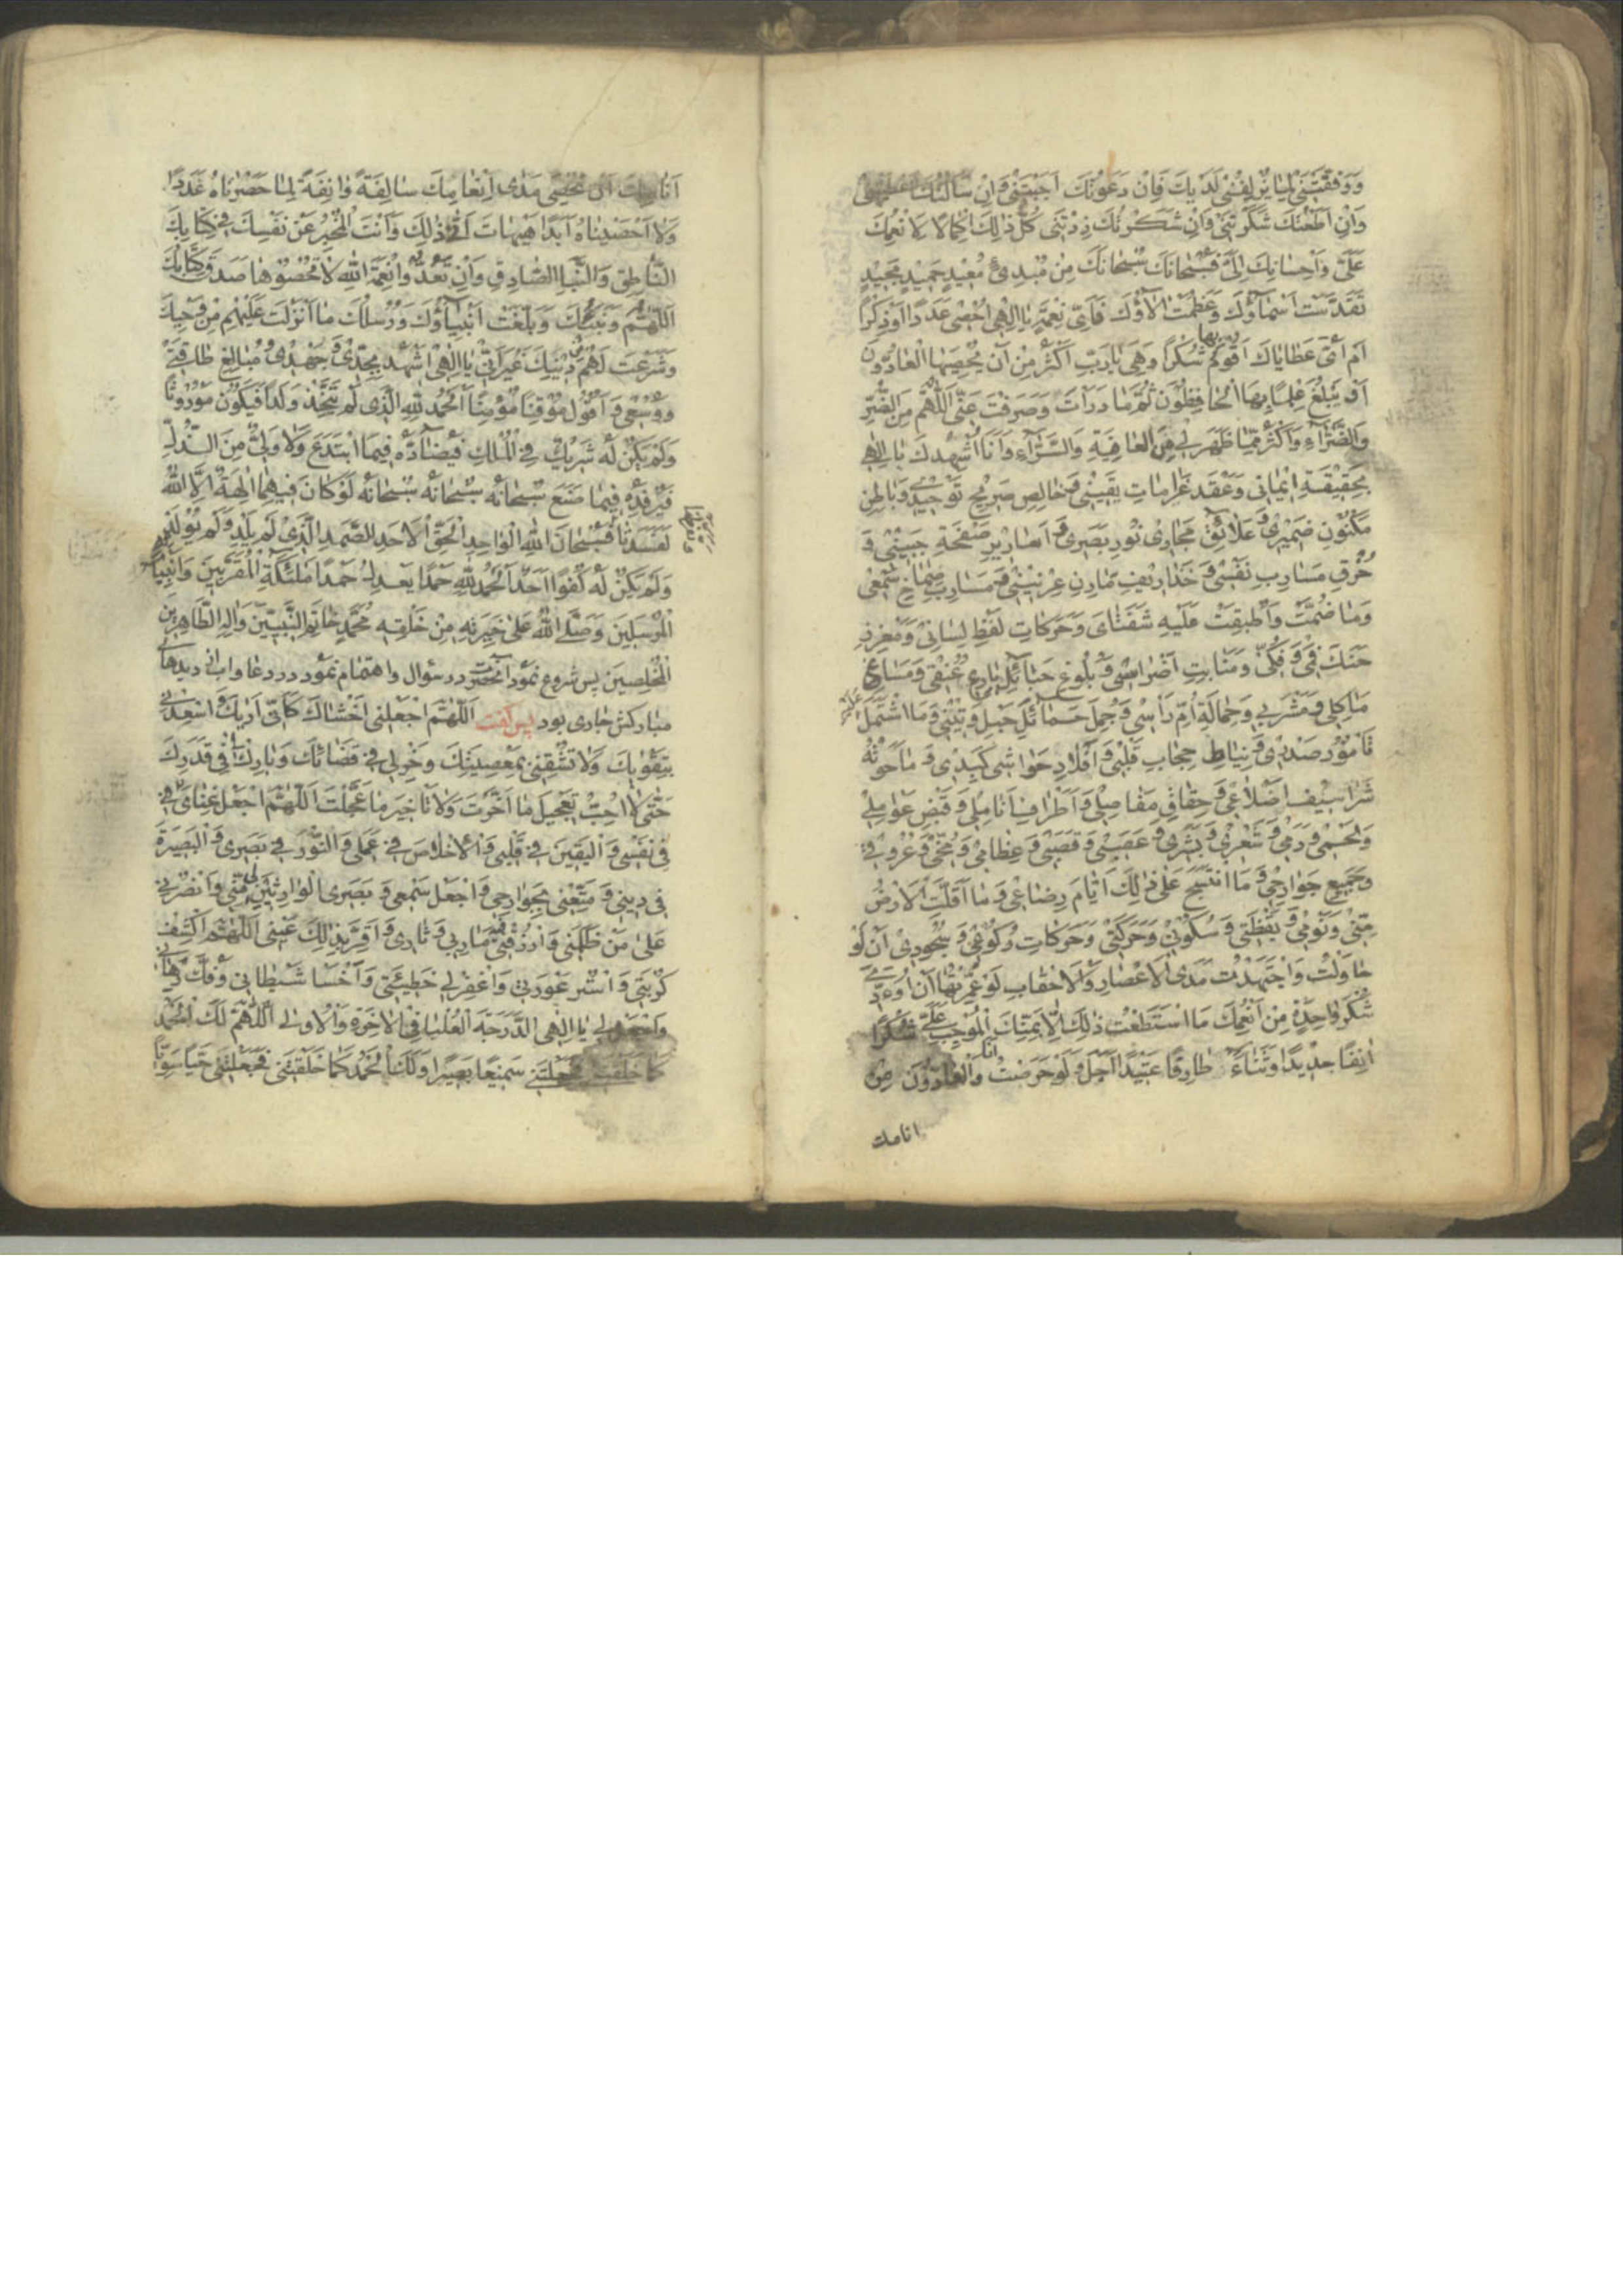 وَوَفَّقْتَنِي لِمَا يُزْلِفُنِي لَدَيْكَ فَاِنْ دَعَوْتُكَ اَجَبْتَنِي وَاِنْ سَاَلْتُكَ اَعْطَيْتَنِي
وَاِنْ اَطَعْتُكَ شَكَرْتَنِي وَاِنْ شَكَرْتُكَ زِدْتَنِي كُلُّ ذٰلِكَ اِكْمَالًا لِاَنْعُمِكَ
عَلَيَّ وَاِحْسَانِكَ اِلَيَّ فَسُبْحَانَكَ سُبْحَانَكَ مِنْ مُبْدِئٍ مُعِيدٍ حَمِيدٍ مَجِيدٍ
تَقَدَّسَتْ اَسْمَاؤُكَ وَعَظُمَتْ اٰلَاؤُكَ فَاَيَّ نِعَمِكَ يَا اِلٰهِي اُحْصِي عَدَدًا اَوْ ذِكْرًا
اَمْ اَيَّ عَطَايَاكَ اَقُومُ بِهَا شُكْرًا وَهِيَ يَا رَبِّ اَكْثَرُ مِنْ اَنْ يُحْصِيَهَا الْعَادُّونَ
اَوْ يَبْلُغَ عِلْمًا بِهَا الْحَافِظُونَ ثُمَّ مَا دَرَاْتَ وَصَرَفْتَ عَنِّي اَللّٰهُمَّ مِنَ الضُّرِّ
وَالضَّرَّاءِ وَاَكْثَرُ مِمَّا ظَهَرَ لِي مِنَ الْعَافِيَةِ وَالسَّرَّاءِ وَاَنَا اُشْهِدُكَ يَا اِلٰهِي
بِحَقِيقَةِ اِيْمَانِي وَعَقْدِ عَزَمَاتِ يَقِينِي وَخَالِصِ صَرِيحِ تَوْحِيدِي وَبَاطِنِ
مَكْنُونِ ضَمِيرِي وَعَلَائِقِ مَجَارِي نُورِ بَصَرِي وَاَسَارِيرِ صَفْحَةِ جَبِينِي وَ
خُرْقِ مَسَارِبِ نَفْسِي وَخَذَارِيفِ مَارِنِ عِرْنِينِي وَمَسَارِبِ صِمَاخِ سَمْعِي
وَمَا ضُمَّتْ وَاَطْبَقَتْ عَلَيْهِ شَفَتَايَ وَحَرَكَاتِ لَفْظِ لِسَانِي وَمَغْرَزِ
حَنَكِ فَمِي وَفَكِّي وَمَنَابِتِ اَضْرَاسِي وَبُلُوغِ حَبَائِلِ بَارِعِ عُنُقِي وَمَسَاغِ
مَاْكَلِي وَمَشْرَبِي وَحِمَالَةِ اُمِّ رَاْسِي وَجُمَلِ حَمَائِلِ حَبْلِ وَتِينِي وَمَا اشْتَمَلَ عَلَيْهِ
تَامُورُ صَدْرِي وَنِيَاطِ حِجَابِ قَلْبِي وَاَفْلَاذِ حَوَاشِي كَبِدِي وَمَا حَوَتْهُ
شَرَاسِيفُ اَضْلَاعِي وَحِقَاقِ مَفَاصِلِي وَاَطْرَافِ اَنَامِلِي وَقَبْضِ عَوَامِلِي
وَلَحْمِي وَدَمِي وَشَعْرِي وَبَشَرِي وَعَصَبِي وَقَصَبِي وَعِظَامِي وَمُخِّي وَعُرُوقِي
وَجَمِيعِ جَوَارِحِي وَمَا انْتَسَجَ عَلَى ذٰلِكَ اَيَّامَ رِضَاعِي وَمَا اَقَلَّتِ الْاَرْضُ
مِنِّي وَنَوْمِي وَيَقْظَتِي وَسُكُونِي وَحَرَكَتِي وَحَرَكَاتِ رُكُوعِي وَسُجُودِي اَنْ لَوْ
حَاوَلْتُ وَاجْتَهَدْتُ مَدَى الْاَعْصَارِ وَالْاَحْقَابِ لَوْ عُمِّرْتُهَا اَنْ اُؤَدِّيَ
شُكْرَ وَاحِدَةٍ مِنْ اَنْعُمِكَ مَا اسْتَطَعْتُ ذٰلِكَ اِلَّا بِمَنِّكَ الْمُوجِبِ عَلَيَّ شُكْرًا
اٰنِفًا جَدِيدًا وَثَنَاءً طَارِفًا عَتِيدًا اَجَلْ وَلَوْ حَرَصْتُ اَنَا وَالْعَادُّونَ مِنْ
انامك
اَنَامِكَ اَنْ نُحْصِيَ مَدَى اِنْعَامِكَ سَالِفَةً وَاٰنِفَةً لِمَا حَصَرْنَاهُ عَدَدًا
وَلَا اَحْصَيْنَاهُ اَبَدًا هَيْهَاتَ اَنّٰى ذٰلِكَ وَاَنْتَ الْمُخْبِرُ عَنْ نَفْسِكَ فِي كِتَابِكَ
النَّاطِقِ وَالنَّبَاِ الصَّادِقِ وَاِنْ تَعُدُّوا نِعْمَةَ اللّٰهِ لَا تُحْصُوهَا صَدَقَ كِتَابُكَ
اَللّٰهُمَّ وَنَبَؤُكَ وَبَلَّغَتْ اَنْبِيَاؤُكَ وَرُسُلُكَ مَا اَنْزَلْتَ عَلَيْهِمْ مِنْ وَحْيِكَ
وَشَرَعْتَ لَهُمْ مِنْ دِينِكَ غَيْرَ اَنِّي يَا اِلٰهِي اَشْهَدُ بِجِدِّي وَجَهْدِي وَمَبَالِغِ طَاقَتِي
وَوُسْعِي وَاَقُولُ مُوقِنًا مُؤْمِنًا اَلْحَمْدُ لِلّٰهِ الَّذِي لَمْ يَتَّخِذْ وَلَدًا فَيَكُونَ مَوْرُوثًا
وَلَمْ يَكُنْ لَهُ شَرِيكٌ فِي الْمُلْكِ فَيُضَادَّهُ فِيمَا ابْتَدَعَ وَلَا وَلِيٌّ مِنَ الذُّلِّ
فَيُرْفِدَهُ فِيمَا صَنَعَ سُبْحَانَهُ سُبْحَانَهُ سُبْحَانَهُ لَوْ كَانَ فِيهِمَا اٰلِهَةٌ اِلَّا اللّٰهُ
لَفَسَدَتَا فَسُبْحَانَ اللّٰهِ الْوَاحِدِ الْحَقِّ الْاَحَدِ الصَّمَدِ الَّذِي لَمْ يَلِدْ وَلَمْ يُولَدْ
وَلَمْ يَكُنْ لَهُ كُفُوًا اَحَدٌ اَلْحَمْدُ لِلّٰهِ حَمْدًا يَعْدِلُ حَمْدَ مَلٰئِكَتِهِ الْمُقَرَّبِينَ وَاَنْبِيَائِهِ
الْمُرْسَلِينَ وَصَلَّى اللّٰهُ عَلَى خِيَرَتِهِ مِنْ خَلْقِهِ مُحَمَّدٍ خَاتَمِ النَّبِيِّينَ وَاٰلِهِ الطَّاهِرِينَ
الْمُخْلَصِينَ پس شروع نمود آنحضرت در سؤال و اهتمام نمود در دعا و اب از ديدهاى
مباركش جارى بود پس گفت اَللّٰهُمَّ اجْعَلْنِي اَخْشَاكَ كَاَنِّي اَرٰيكَ وَاَسْعِدْنِي
بِتَقْوٰيكَ وَلَا تُشْقِنِي بِمَعْصِيَتِكَ وَخِرْ لِي فِي قَضَائِكَ وَبَارِكْ لِي فِي قَدَرِكَ
حَتّٰى لَا اُحِبَّ تَعْجِيلَ مَا اَخَّرْتَ وَلَا تَاْخِيرَ مَا عَجَّلْتَ اَللّٰهُمَّ اجْعَلْ غِنَايَ فِي
فِي نَفْسِي وَالْيَقِينَ فِي قَلْبِي وَالْاِخْلَاصَ فِي عَمَلِي وَالنُّورَ فِي بَصَرِي وَالْبَصِيرَةَ
فِي دِينِي وَمَتِّعْنِي بِجَوَارِحِي وَاجْعَلْ سَمْعِي وَبَصَرِي الْوَارِثَيْنِ مِنِّي وَانْصُرْنِي
عَلٰى مَنْ ظَلَمَنِي وَارْزُقْنِي مَاٰرِبِي وَثَارِي وَاَقِرَّ بِذٰلِكَ عَيْنِي اَللّٰهُمَّ اكْشِفْ
كُرْبَتِي وَاسْتُرْ عَوْرَتِي وَاغْفِرْ لِي خَطِيئَتِي وَاَخْسَا شَيْطَانِي وَفُكَّ رِهَانِي
وَاجْعَلْ لِي يَا اِلٰهِي الدَّرَجَةَ الْعُلْيَا فِي الْاٰخِرَةِ وَالْاُولٰى اَللّٰهُمَّ لَكَ الْحَمْدُ
كَمَا خَلَقْتَنِي فَجَعَلْتَنِي سَمِيعًا بَصِيرًا وَلَكَ الْحَمْدُ كَمَا خَلَقْتَنِي فَجَعَلْتَنِي حَيًّا سَوِيًّا